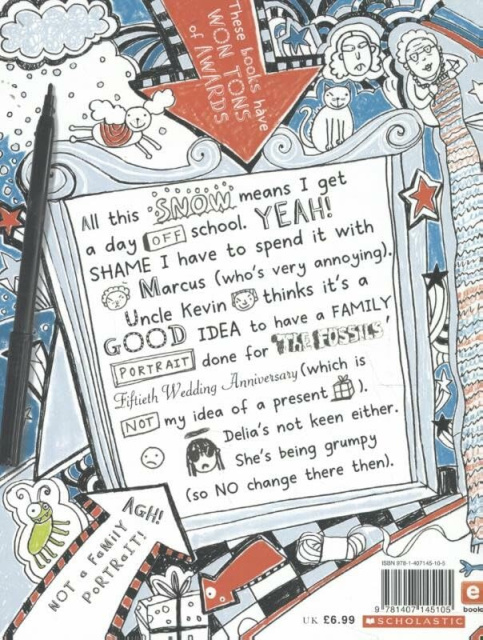 These books have
WON TONS
of AWARDS
All this SNOW means I get
a day OFF school. YEAH!
SHAME I have to spend it with
Marcus (who's very annoying).
Uncle Kevin thinks it's a
GOOD IDEA to have a FAMILY
PORTRAIT done for 'THE FOSSILS'
Fiftieth Wedding Anniversary (which is
NOT my idea of a present).
Delia's not keen either.
She's being grumpy
(so NO change there then).
AGH!
NOT a FamiLY
PoRTRaiT!
ISBN 978-1-407145-10-5
9 781407 145105
UK £6.99
SCHOLASTIC
e
book